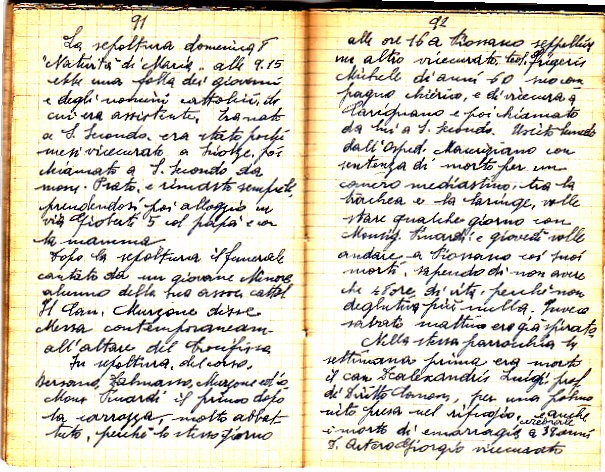 91
La sepoltura domenica 8
"Natività di Maria" alle 9.15
ebbe una folla dei giovani
e degli uomini cattolici, di
cui era assistente. Era nato
a S. Secondo, era stato pochi
mesi vicecurato a, poi
chiamato a S. Secondo da
mons. Prato, e rimasto sempre lì,
prendendosi poi alloggio in
via Gioberti 5 col papà e con
la mamma
Dopo la sepoltura il funerale
cantato da un giovane Minore
alunno della sua assoc. cattol.
Il Can. Murzone disse
Messa contemporaneam-
all'altare del Crocifisso
In sepoltura, del corso,
Bersano, Dalmasso, Murzone ed io
Mons. Pinardi il primo dopo
la carrozza, molto abbat-
tuto, perchè lo stesso giorno
92
alle ore 16 a Piossano seppelliva
un altro vicecurato, teol. Frigeris
Michele di anni 60 mio com-
pagno chierico, e di vicecura a
Carignano e poi chiamato
da lui a S. Secondo. Uscito lunedì
dall'Osped. Mauriziano con
sentenza di morte per un
cancro mediastino, tra la
trachea e la laringe, volle
stare qualche giorno con
Monsig. Pinardi: e giovedì volle
andare a Piossano coi suoi
morti, sapendo di non avere
che 48 ore di vita, perchè non
deglutiva più nulla. Invece
sabato mattina era già spirato.
Nella stessa parrocchia la
settimana prima era morto
il can. Dealexandris Luigi, prof.
di Diritto Canon., per una polmo
nite presa nel rifugio, e anche
è morto di emorragia cerebrale a 38 anni
D. Artero Giorgio vicecurato